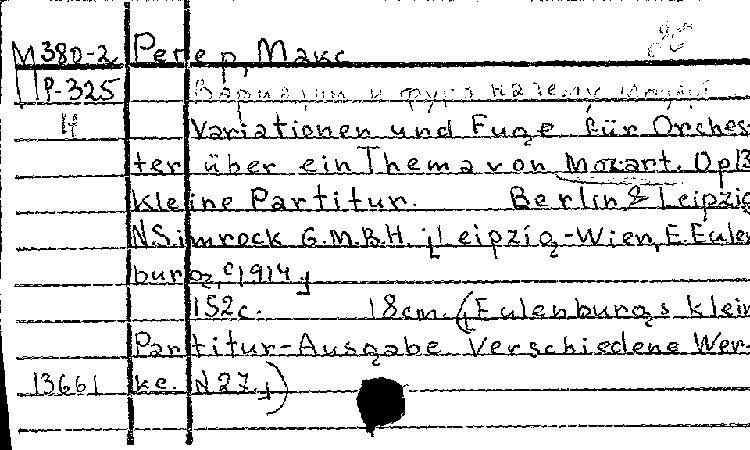 М380-2 Регер, Макс
Р-325 Вариации и фуга на тему
И Variationen und Fuge für Orches-
ter über ein Thema von Mozart. Op13
Kleine Partitur. Berlin & Leipzig
N.Simrock G.M.B.H. [Leipzig-Wien, E.Eulen
burg, c1914]
152c. 18cm. (Eulenburgs klein
Partitur-Ausgabe Verschiedene Wer-
13661 ke. N27.)